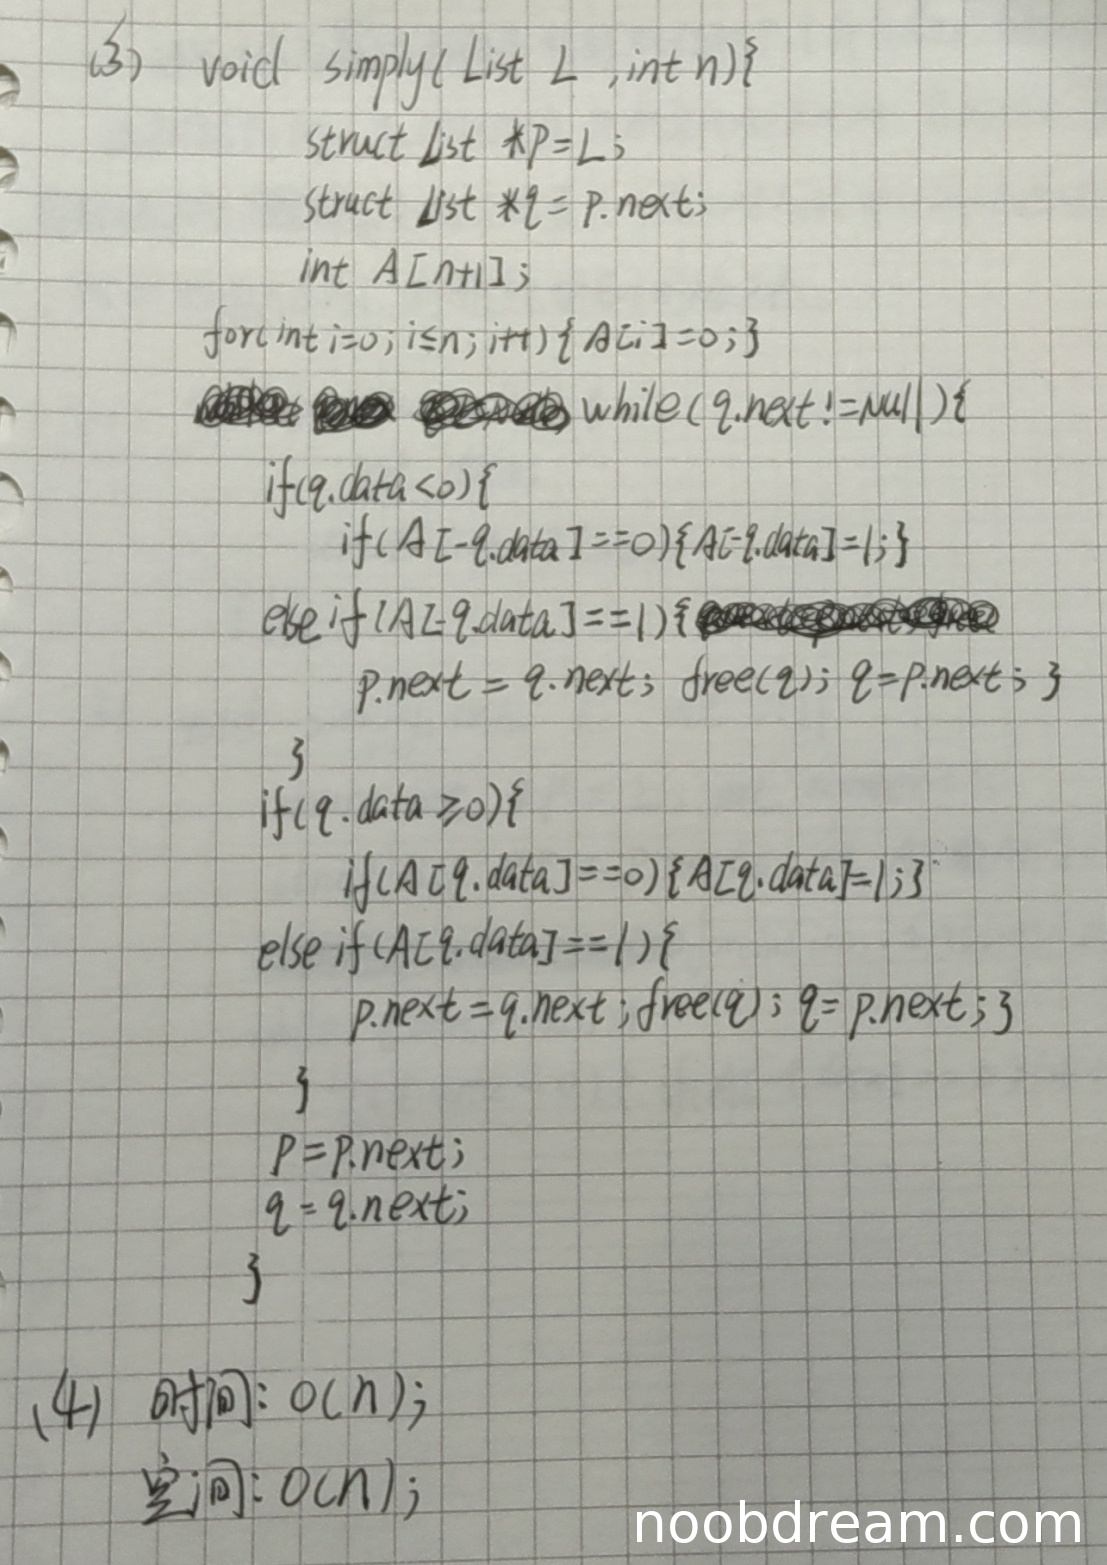 (3) void simply(List L ,int n){
struct List *p=L;
struct List *q=p.next;
int A[n+1];
for(int i=0;i≤n;i++){A[i]=0;}
while(q.next!=Null){
if(q.data<0){
if(A[-q.data]==0){A[-q.data]=1;}
else if(A[-q.data]==1){
p.next=q.next; free(q); q=p.next; }
}
if(q.data≥0){
if(A[q.data]==0){A[q.data]=1;}
else if(A[q.data]==1){
p.next=q.next;free(q); q=p.next;}
}
p=p.next;
q=q.next;
}
(4) 时间:O(n);
空间:O(n);
noobdream.com